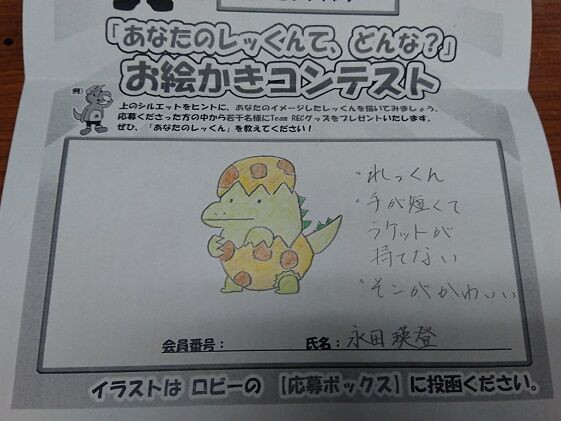 「あなたのレッくんて、どんな？」
お絵かきコンテスト
例）
上のシルエットをヒントに、あなたのイメージしたレッくんを描いてみましょう。
応募くださった方の中から若干名様にTeam RECグッズをプレゼントいたします。
ぜひ、「あなたのレッくん」を教えてください！
・れっくん
・手が短くて
ラケットが
持てない
・そこがかわいい
会員番号：
氏名：永田 瑛登
イラストは ロビーの 【応募ボックス】に投函ください。